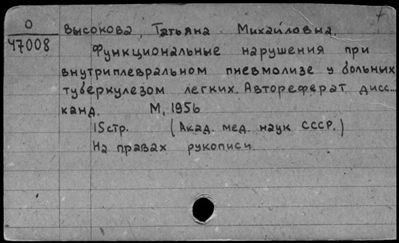 О
47008
Высокова, Татьяна Михайловна.
Функциональные нарушения при
внутриплевральном пневмолизе у больных
туберкулезом легких. Автореферат дисс...
канд. М, 1956
15стр. (Акад. мед. наук СССР.)
На правах рукописи